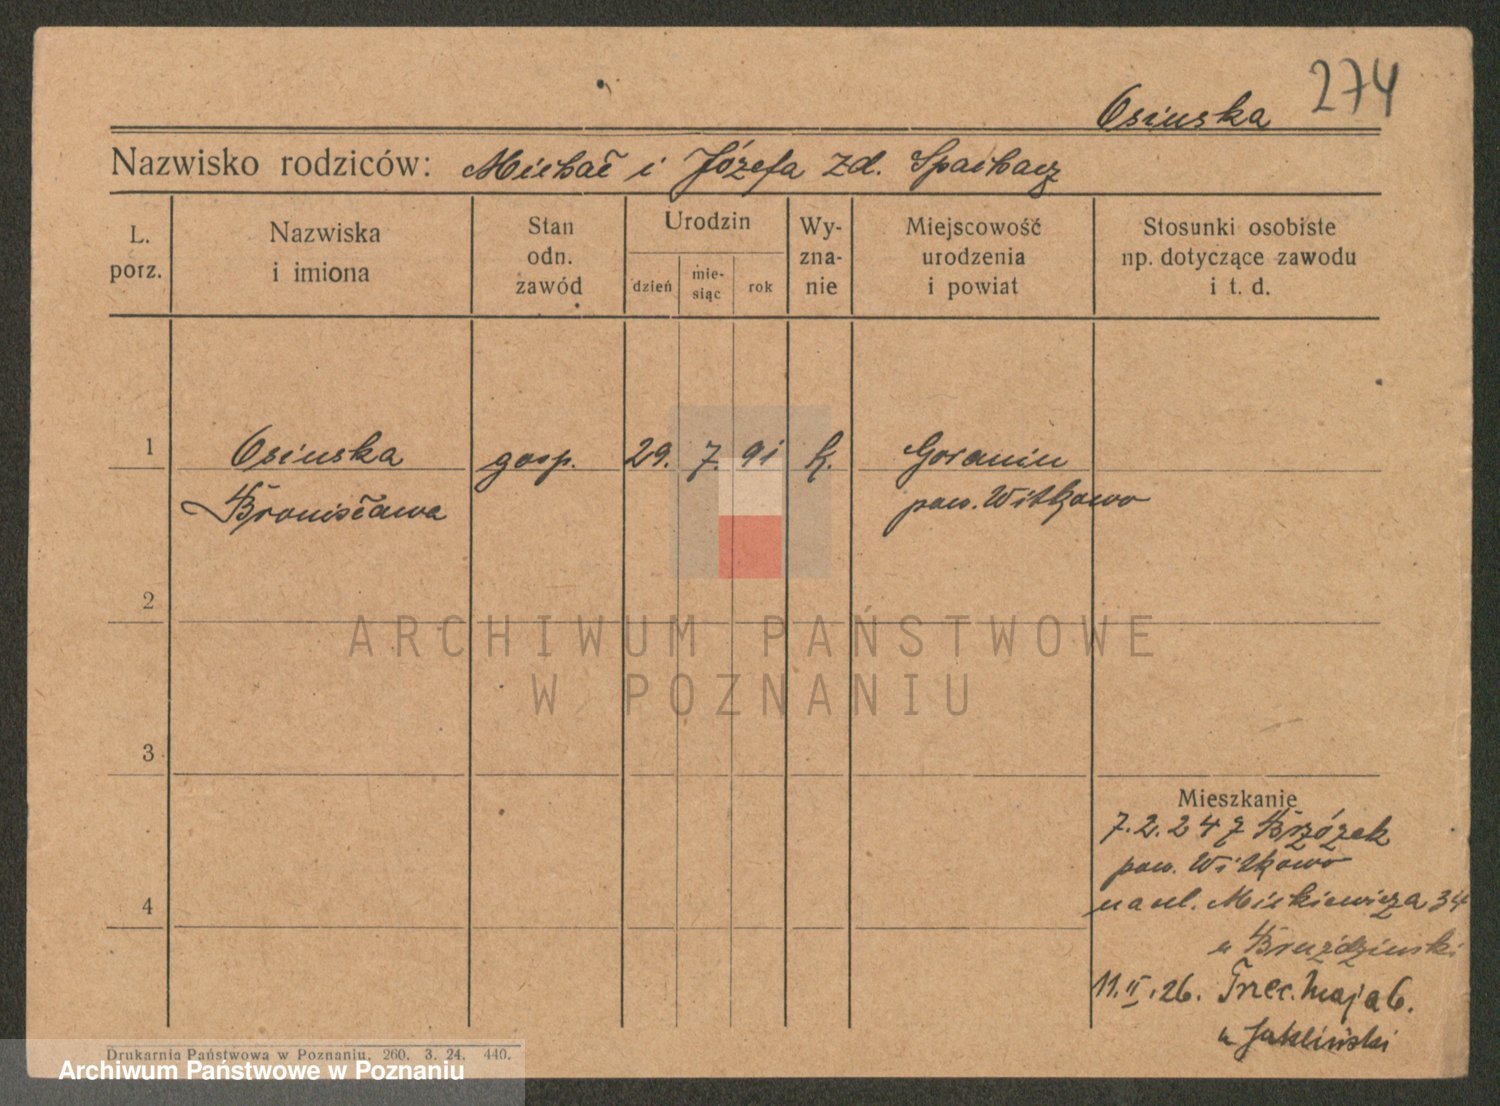 274
Osinska
Nazwisko rodziców: Michał i Józefa zd. Spachacz
L. porz.
Nazwiska i imiona
Stan odn. zawód
Urodzin
dzień
mie-siąc
rok
Wy-zna-nie
Miejscowość urodzenia i powiat
Stosunki osobiste np. dotyczące zawodu i t. d.
1 Osinska gosp. 29. 7. 91 k. Goranin
Bronisława pow. Witkowo
2
3
4
Mieszkanie
7.2.24 z Brzózek
pow. Witkowo
na ul. Mickiewicza 34
u Bruździnski
11.II.26. Trzec. Maja 6.
u Jakliński
Drukarnia Państwowa w Poznaniu. 260. 3. 24. 440.
ARCHIWUM PAŃSTWOWE
W POZNANIU
Archiwum Państwowe w Poznaniu